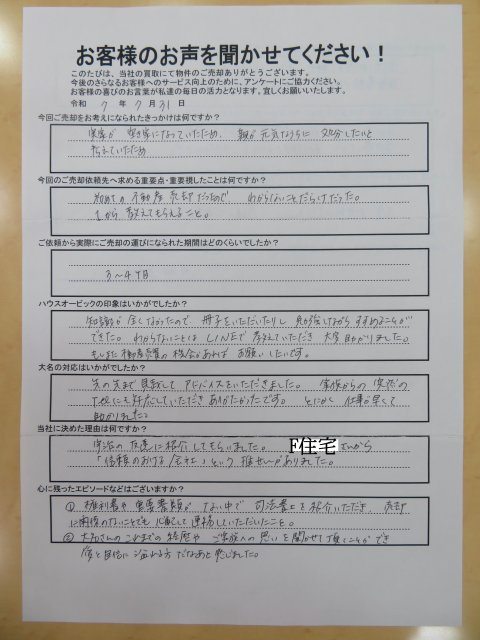 お客様のお声を聞かせてください！
このたびは、当社の買取にて物件のご売却ありがとうございます。
今後のさらなるお客様へのサービス向上のために、アンケートにご協力ください。
お客様の喜びのお言葉が私達の毎日の活力となります。宜しくお願いいたします。
令和 7 年 7 月 31 日
今回ご売却をお考えになられたきっかけは何ですか？
実家が 空き家になっていたため、 親が元気なうちに 処分したいと
考えていたため
今回のご売却依頼先へ求める重要点・重要視したことは何ですか？
初めての不動産売却だったので わからないことだらけだった。
1から 教えてもらえること。
ご依頼から実際にご売却の運びになられた期間はどのくらいでしたか？
3～4ヶ月
ハウスオービックの印象はいかがでしたか？
知識が全くなかったので 冊子をいただいたりし 勉強しながら すすめることが
できた。わからないことは LINEで教えていただき 大変助かりました。
もしまた不動産売買の機会があれば お願いしたいです。
大名の対応はいかがでしたか？
先の先まで見越して アドバイスをいただきました。 家族からの突然の
にも対応していただき ありがたかったです。 とにかく 仕事が早くて
助かりました。
当社に決めた理由は何ですか？
の友達に紹介してもらいました。 F住宅 さんから
「信頼のおける会社」という 推せんがありました。
心に残ったエピソードなどはございますか？
① 権利書や重要書類が ない中で 司法書士を紹介いただき 売却
に関係のないことでも 心配して 連絡していただいたこと。
② 大名さんのこれまでの経歴や ご家族への思いを聞かせて頂くことができ
愛と自信に溢れる方だなあと感じました。